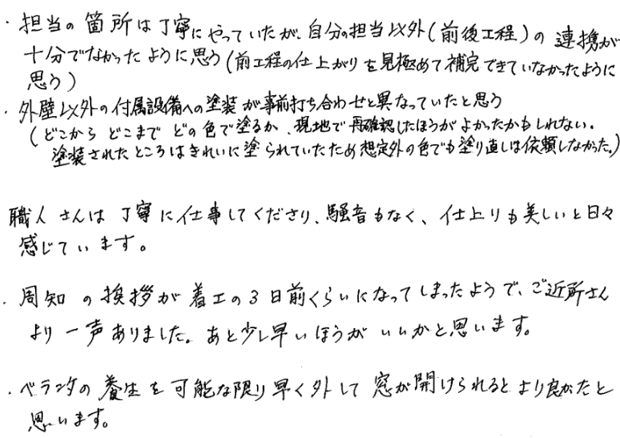 ・担当の箇所は丁寧にやっていたが、自分の担当以外(前後工程)の連携が
十分でなかったように思う(前工程の仕上がりを見極めて補完できていなかったように
思う)
・外壁以外の付属設備への塗装が事前打ち合わせと異なっていたと思う
(どこからどこまでどの色で塗るか、現地で再確認したほうがよかったかもしれない。
塗装されたところはきれいに塗られていたため想定外の色でも塗り直しは依頼しなかった。)
職人さんは丁寧に仕事してくださり、騒音もなく、仕上りも美しいと日々
感じています。
・周知の挨拶が着工の3日前くらいになってしまったようで、ご近所さん
より一声ありました。あと少し早いほうがいいかと思います。
・ベランダの養生を可能な限り早く外して窓が開けられるとより良かったと
思います。